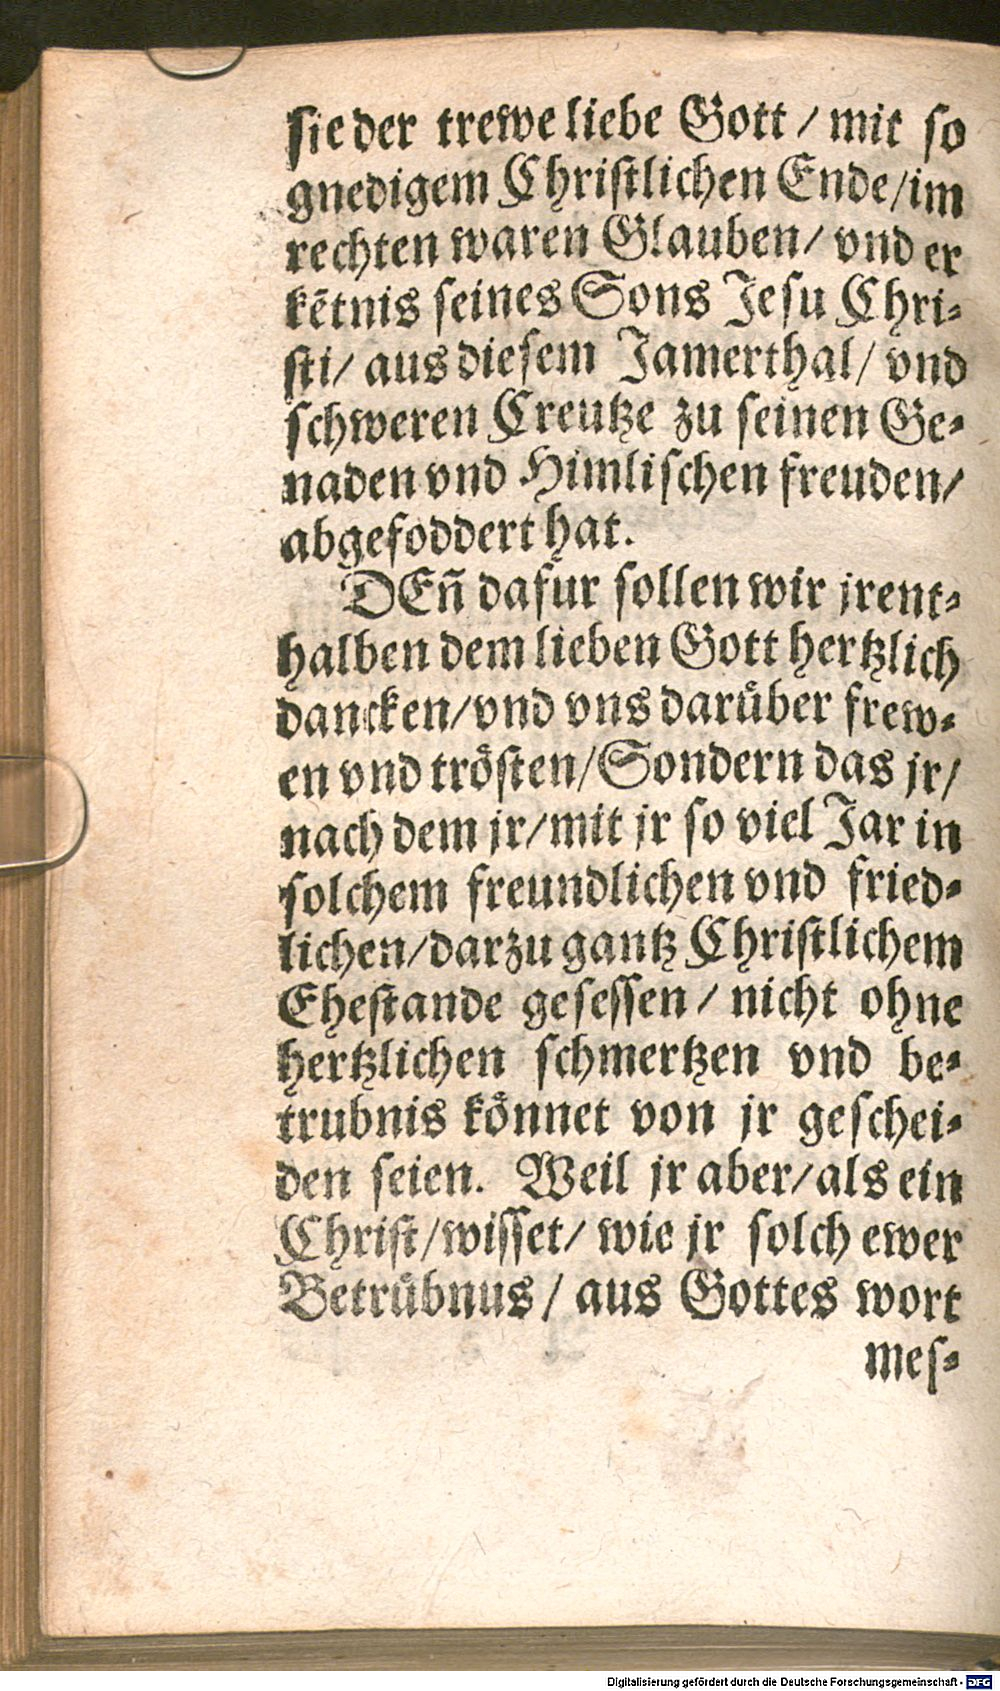 sie der trewe liebe Gott / mit so
gnedigem Christlichen Ende/im
rechten waren Glauben/ vnd er
kẽtnis seines Sons Jesu Chri-
sti/ aus diesem Jamerthal/ vnd
schweren Creutze zu seinen Ge-
naden vnd Himlischen freuden/
abgefoddert hat.
DEñ dafur sollen wir jrent-
halben dem lieben Gott hertzlich
dancken/vnd vns darüber frew-
en vnd trösten/Sondern das jr/
nach dem jr/mit jr so viel Jar in
solchem freundlichen vnd fried-
lichen/darzu gantz Christlichem
Ehestande gesessen/ nicht ohne
hertzlichen schmertzen vnd be-
trubnis könnet von jr geschei-
den seien. Weil jr aber/als ein
Christ/wisset/ wie jr solch ewer
Betrübnus/ aus Gottes wort
mes-
Digitalisierung gefördert durch die Deutsche Forschungsgemeinschaft - DFG